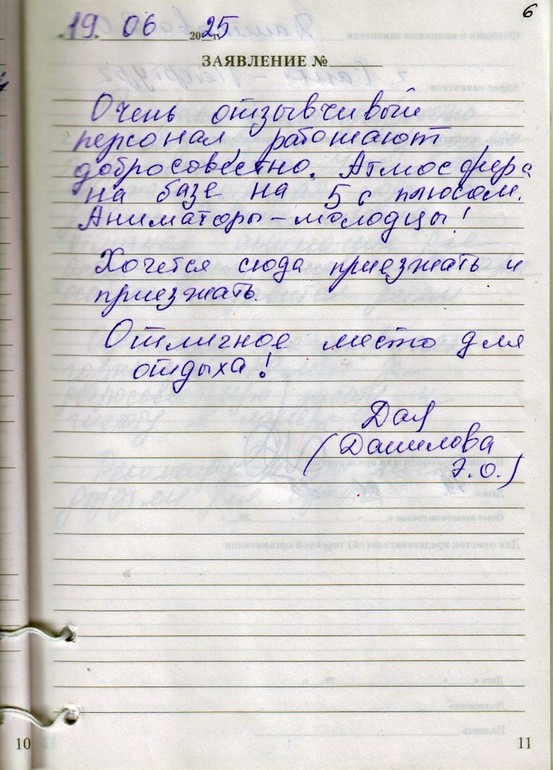 6
19. 06 2025
ЗАЯВЛЕНИЕ №
Очень отзывчивый
персонал, работают
добросовестно. Атмосфера
на базе на 5 с плюсом.
Аниматоры – молодцы!
Хочется сюда приезжать и
приезжать.
Отличное место для
отдыха!
(Данилова
Э.О.)
10
11